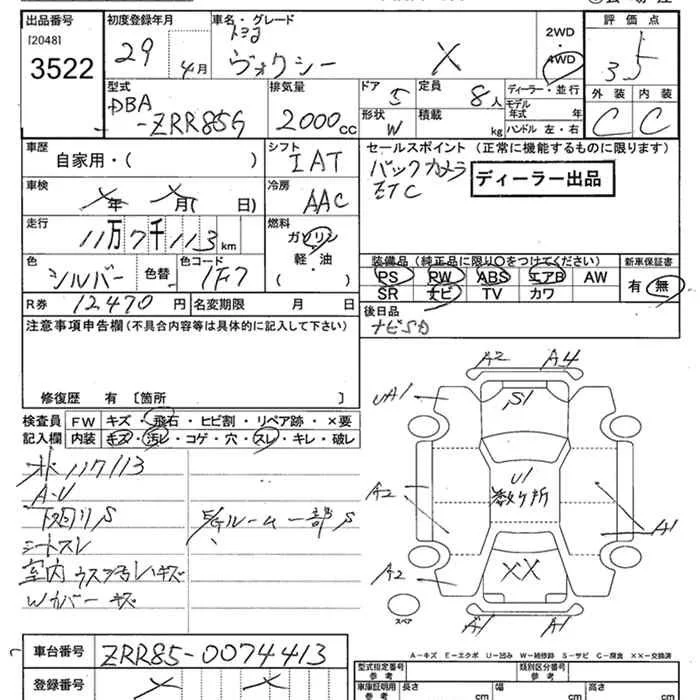 出品番号 初度登録年月 車名・グレード 評価点
[2048] トヨタ 2WD
3522 29 4月 ヴォクシー X 4WD 3.5
型式 排気量 ドア 5 定員 8人 ディーラー・並行 外装 内装
DBA モデル年式 年 C C
-ZRR85G 2000cc 形状 W 積載 kg ハンドル 左・右
車歴 シフト セールスポイント (正常に機能するものに限ります)
自家用・( ) IAT バックカメラ
車検 冷房 ETC ディーラー出品
X年 X月( 日) AAC
走行 燃料
11万7千113km ガソリン
軽・油
( )
色 色替 色コード 装備品 (純正品に限り○をつけてください) 新車保証書
シルバー 1F7 PS RW ABS エアB AW 有 無
R券 12,470円 名変期限 月 日 SR ナビ TV カワ
注意事項申告欄 (不具合内容等は具体的に記入して下さい) 後日品
ナビSD
修復歴 有 〔箇所 〕
検査員 FW キズ・飛石・ヒビ割・リペア跡・×要
記入欄 内装 キズ・汚レ・コゲ・穴・スレ・キレ・破レ
A2 A4
UA1 S1
117113
A・U
下回りS
E/gルーム一部S
シートスレ
室内ウス汚レハキズ
Wカバーキズ
U1
数ヶ所
A2 A1
A2 XX
A1 A1
スペア
A-キズ E-エクボ U-凹み W-補修跡 S-サビ C-腐食 XX-交換済
車台番号 ZRR85-0074413
型式指定番号 参考 類別区分番号 参考
登録番号 X X
車庫証明用 参考 長さ cm 幅 cm 高さ cm